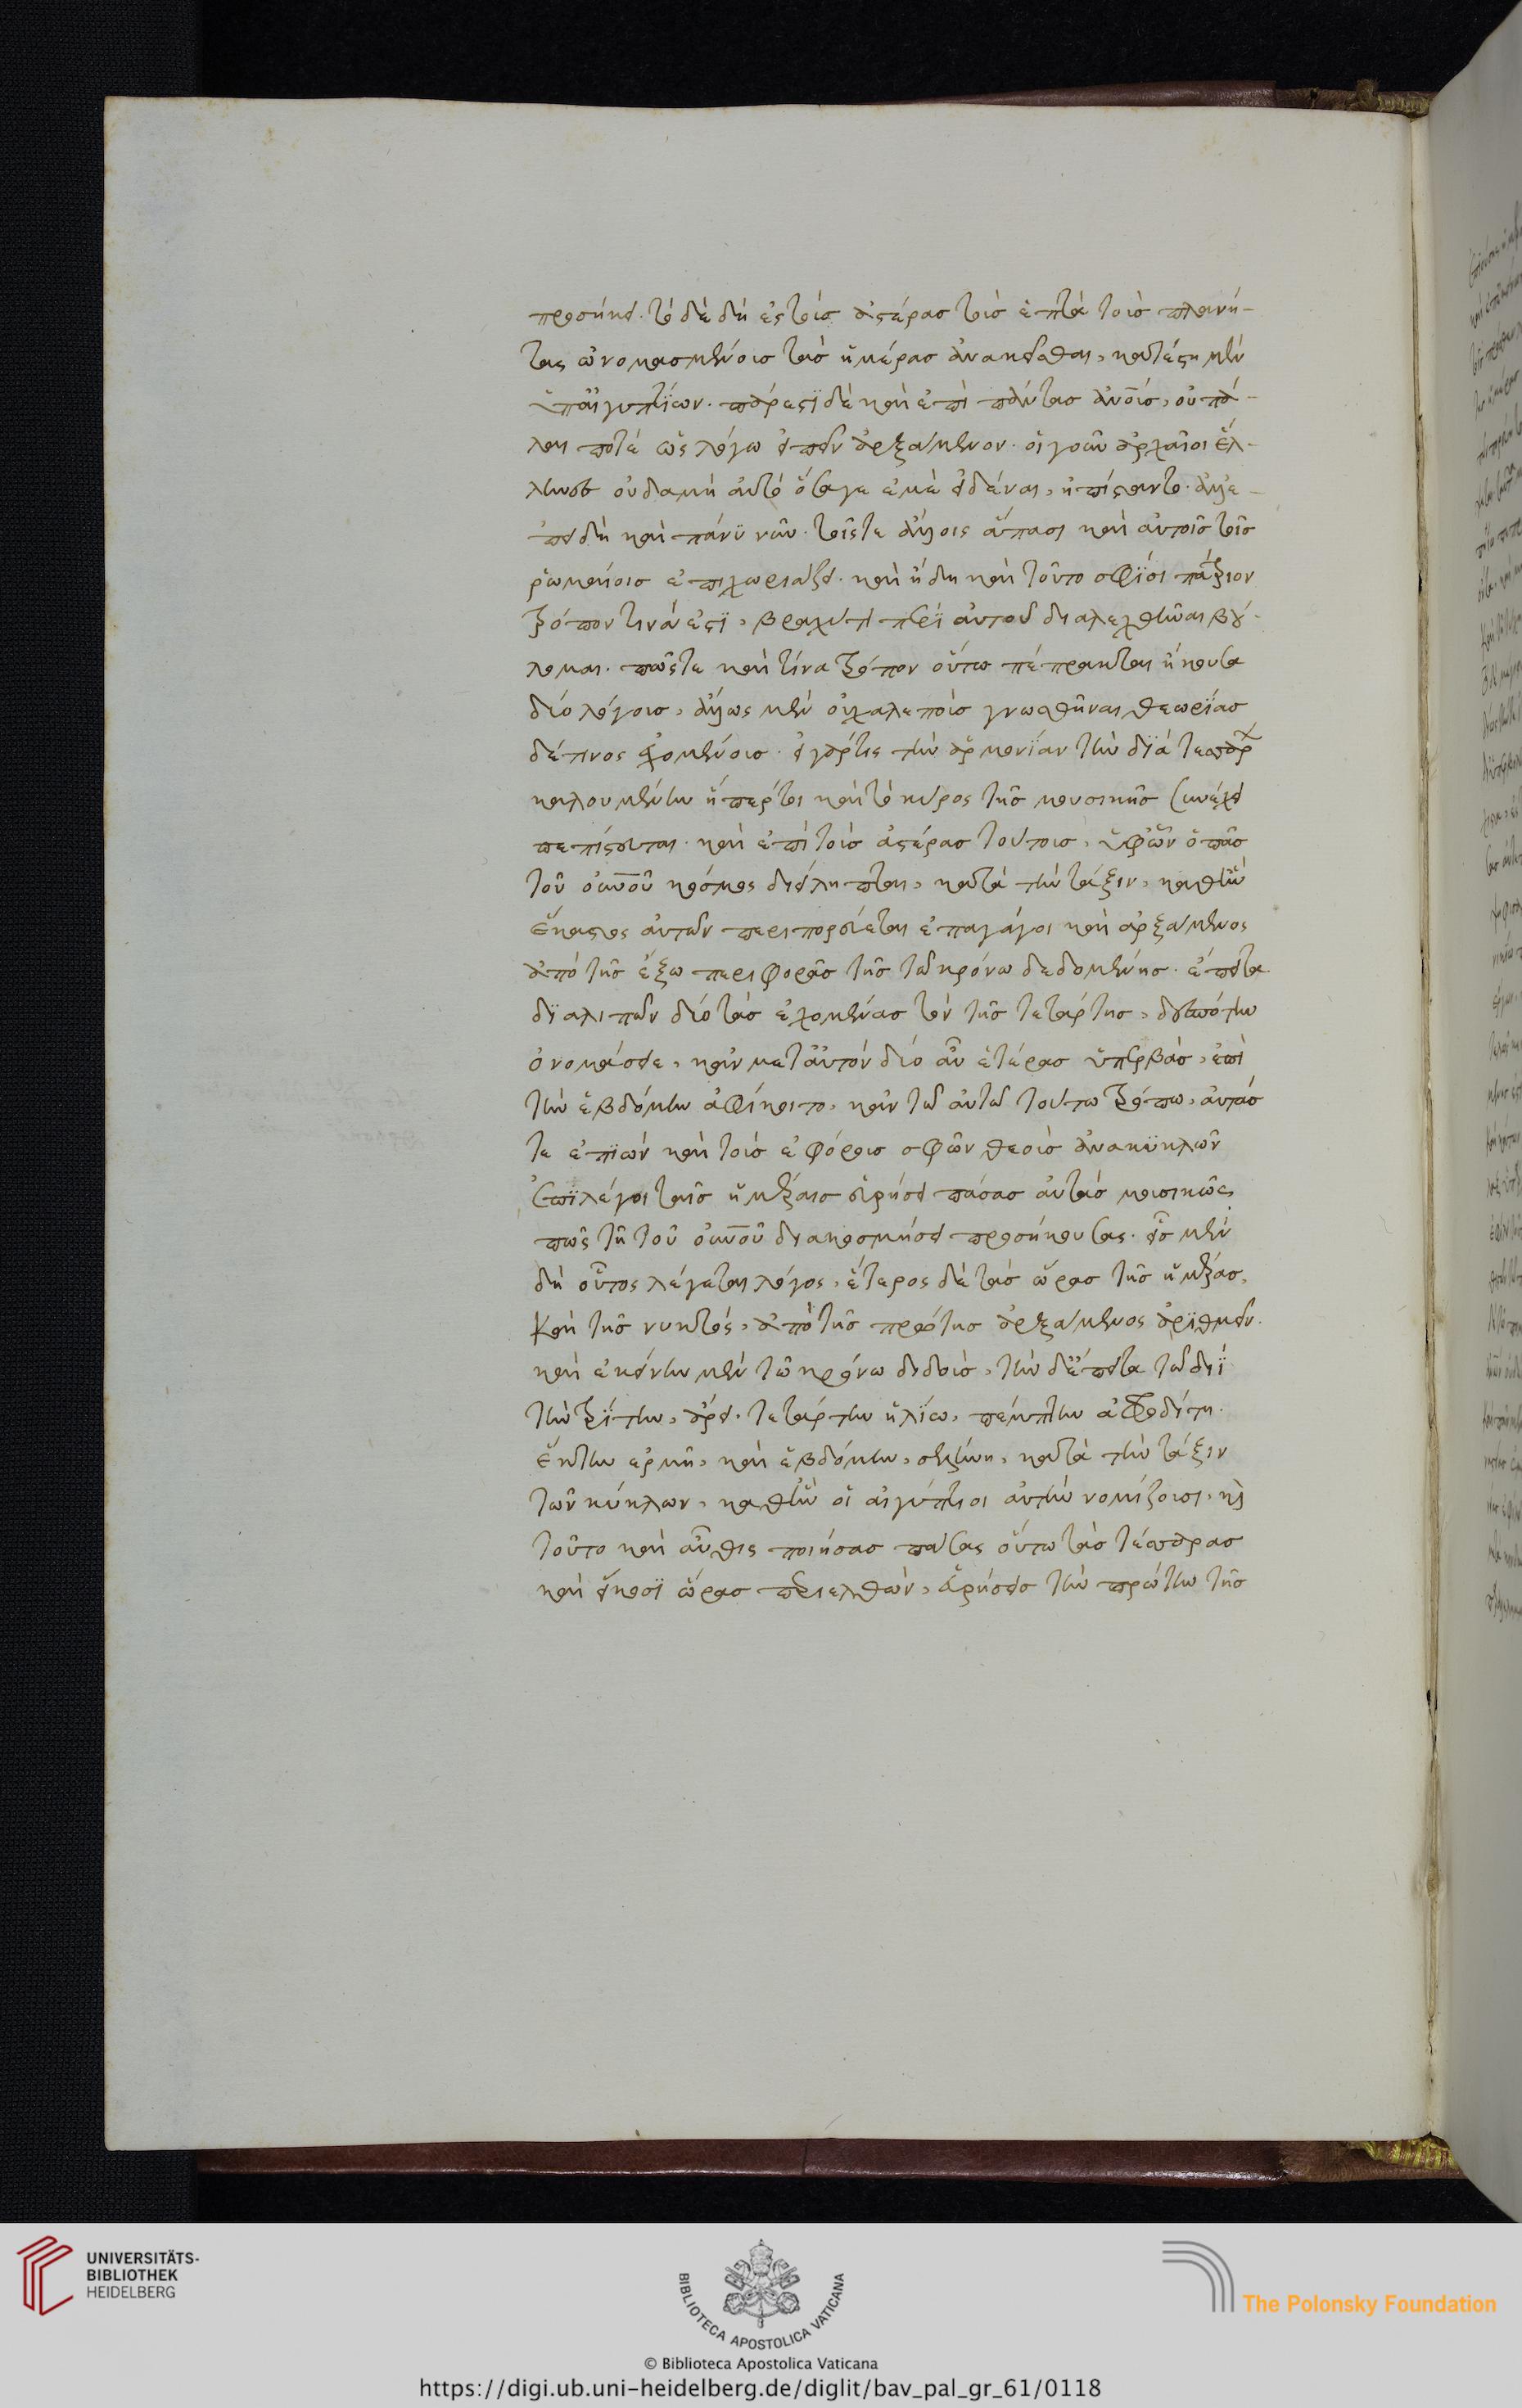 προσήκει. τὸ δὲ δὴ ἐς τοὺς ἀστέρας τοὺς ἑπτὰ τοὺς πλανή-
τας ὠνομασμένους τὰς ἡμέρας ἀνακεῖσθαι, κατέστη μὲν
ὑπ' αἰγυπτίων. πάρεστι δὲ καὶ ἐπὶ πάντας ἀνους, οὐ πά-
λαι ποτέ ὡς λόγω εἰπεῖν ἀρξάμενον. οἱ γοῦν ἀρχαῖοι ἕλ-
ληνες οὐδαμῆ αὐτό ὅσα γε ἐμὲ εἰδέναι, ἠπίσταντο. ἀλλ' ε-
πειδὴ καὶ πάνυ νῦν. τοῖς τε ἄλλοις ἅπασι καὶ αὐτοῖς τοῖς
ῥωμαίοις ἐπιχωριάζει. καὶ ἤδη καὶ τοῦτο σφίσι πάτριον
τρόπον τινά ἐστι, βραχύ τι περὶ αὐτοῦ διαλεχθῆναι βού-
λομαι. πῶς τε καὶ τίνα τρόπον οὕτω πέπρακται ἤκουσα
δύο λόγους, ἄλλως μὲν οὐ χαλεποὺς γνωσθῆναι θεωρίας
δέ τινος ἐχομένους. εἰ γάρ τις τὴν ἁρμονίαν τὴν διὰ τεσσάρ
καλουμένην ἥπερ τοι καὶ τὸ κῦρος τῆς μουσικῆς συνέχει
πεπίστευται. καὶ ἐπὶ τοὺς ἀστέρας τούτους, ὑφ' ὧν ὁ πᾶς
τοῦ οὐνοῦ κόσμος διείληπται, κατὰ τὴν τάξιν, καθ' ἣν
ἕκαστος αὐτῶν περιπορεύεται ἐπαγάγοι καὶ ἀρξάμενος
ἀπὸ τῆς ἔξω περιφορᾶς τῆς τῶ κρόνω δεδομένης. ἔπειτα
διαλιπὼν δύο τὰς ἐχομένας τὸν τῆς τετάρτης, δεσπότην
ὀνομάσειε, κἂν μετ' αὐτὸν δύο αὖ ἑτέρας ὑπερβάς, ἐπὶ
τὴν ἑβδόμην ἀφίκοιτο, κἂν τῶ αὐτῶ τούτω τρόπω, αὐτάς
τε ἐπιὼν καὶ τοὺς ἐφόρους σφῶν θεοὺς ἀνακυκλῶν
ἐπιλέγοι ταῖς ἡμέραις εὑρήσει πάσας αὐτὰς μουσικῶς
πῶς τῆ τοῦ οὐνοῦ διακοσμήσει προσηκούσας. εἷς μὲν
δὴ οὗτος λέγεται λόγος, ἕτερος δὲ τὰς ὥρας τῆς ἡμέρας,
καὶ τῆς νυκτός, ἀπὸ τῆς πρώτης ἀρξάμενος ἀριθμεῖν.
καὶ ἐκείνην μὲν τῶ κρόνω διδούς, τὴν δ' ἔπειτα τῶ διί
τὴν τρίτην, ἄρει. τετάρτην ἡλίω, πέμπτην ἀφροδίτη.
ἕκτην ἑρμῆ, καὶ ἑβδόμην, σελήνη, κατὰ τὴν τάξιν
τῶν κύκλων, καθ' ἣν οἱ αἰγύπτιοι αὐτὴν νομίζουσι, καὶ
τοῦτο καὶ αὖθις ποιήσας πάσας οὕτω τὰς τέσσαρας
καὶ εἴκοσι ὥρας περιελθών, εὑρήσεις τὴν πρώτην τῆς
UNIVERSITÄTS-
BIBLIOTHEK
HEIDELBERG
BIBLIOTECA APOSTOLICA VATICANA
The Polonsky Foundation
© Biblioteca Apostolica Vaticana
https://digi.ub.uni-heidelberg.de/diglit/bav_pal_gr_61/0118